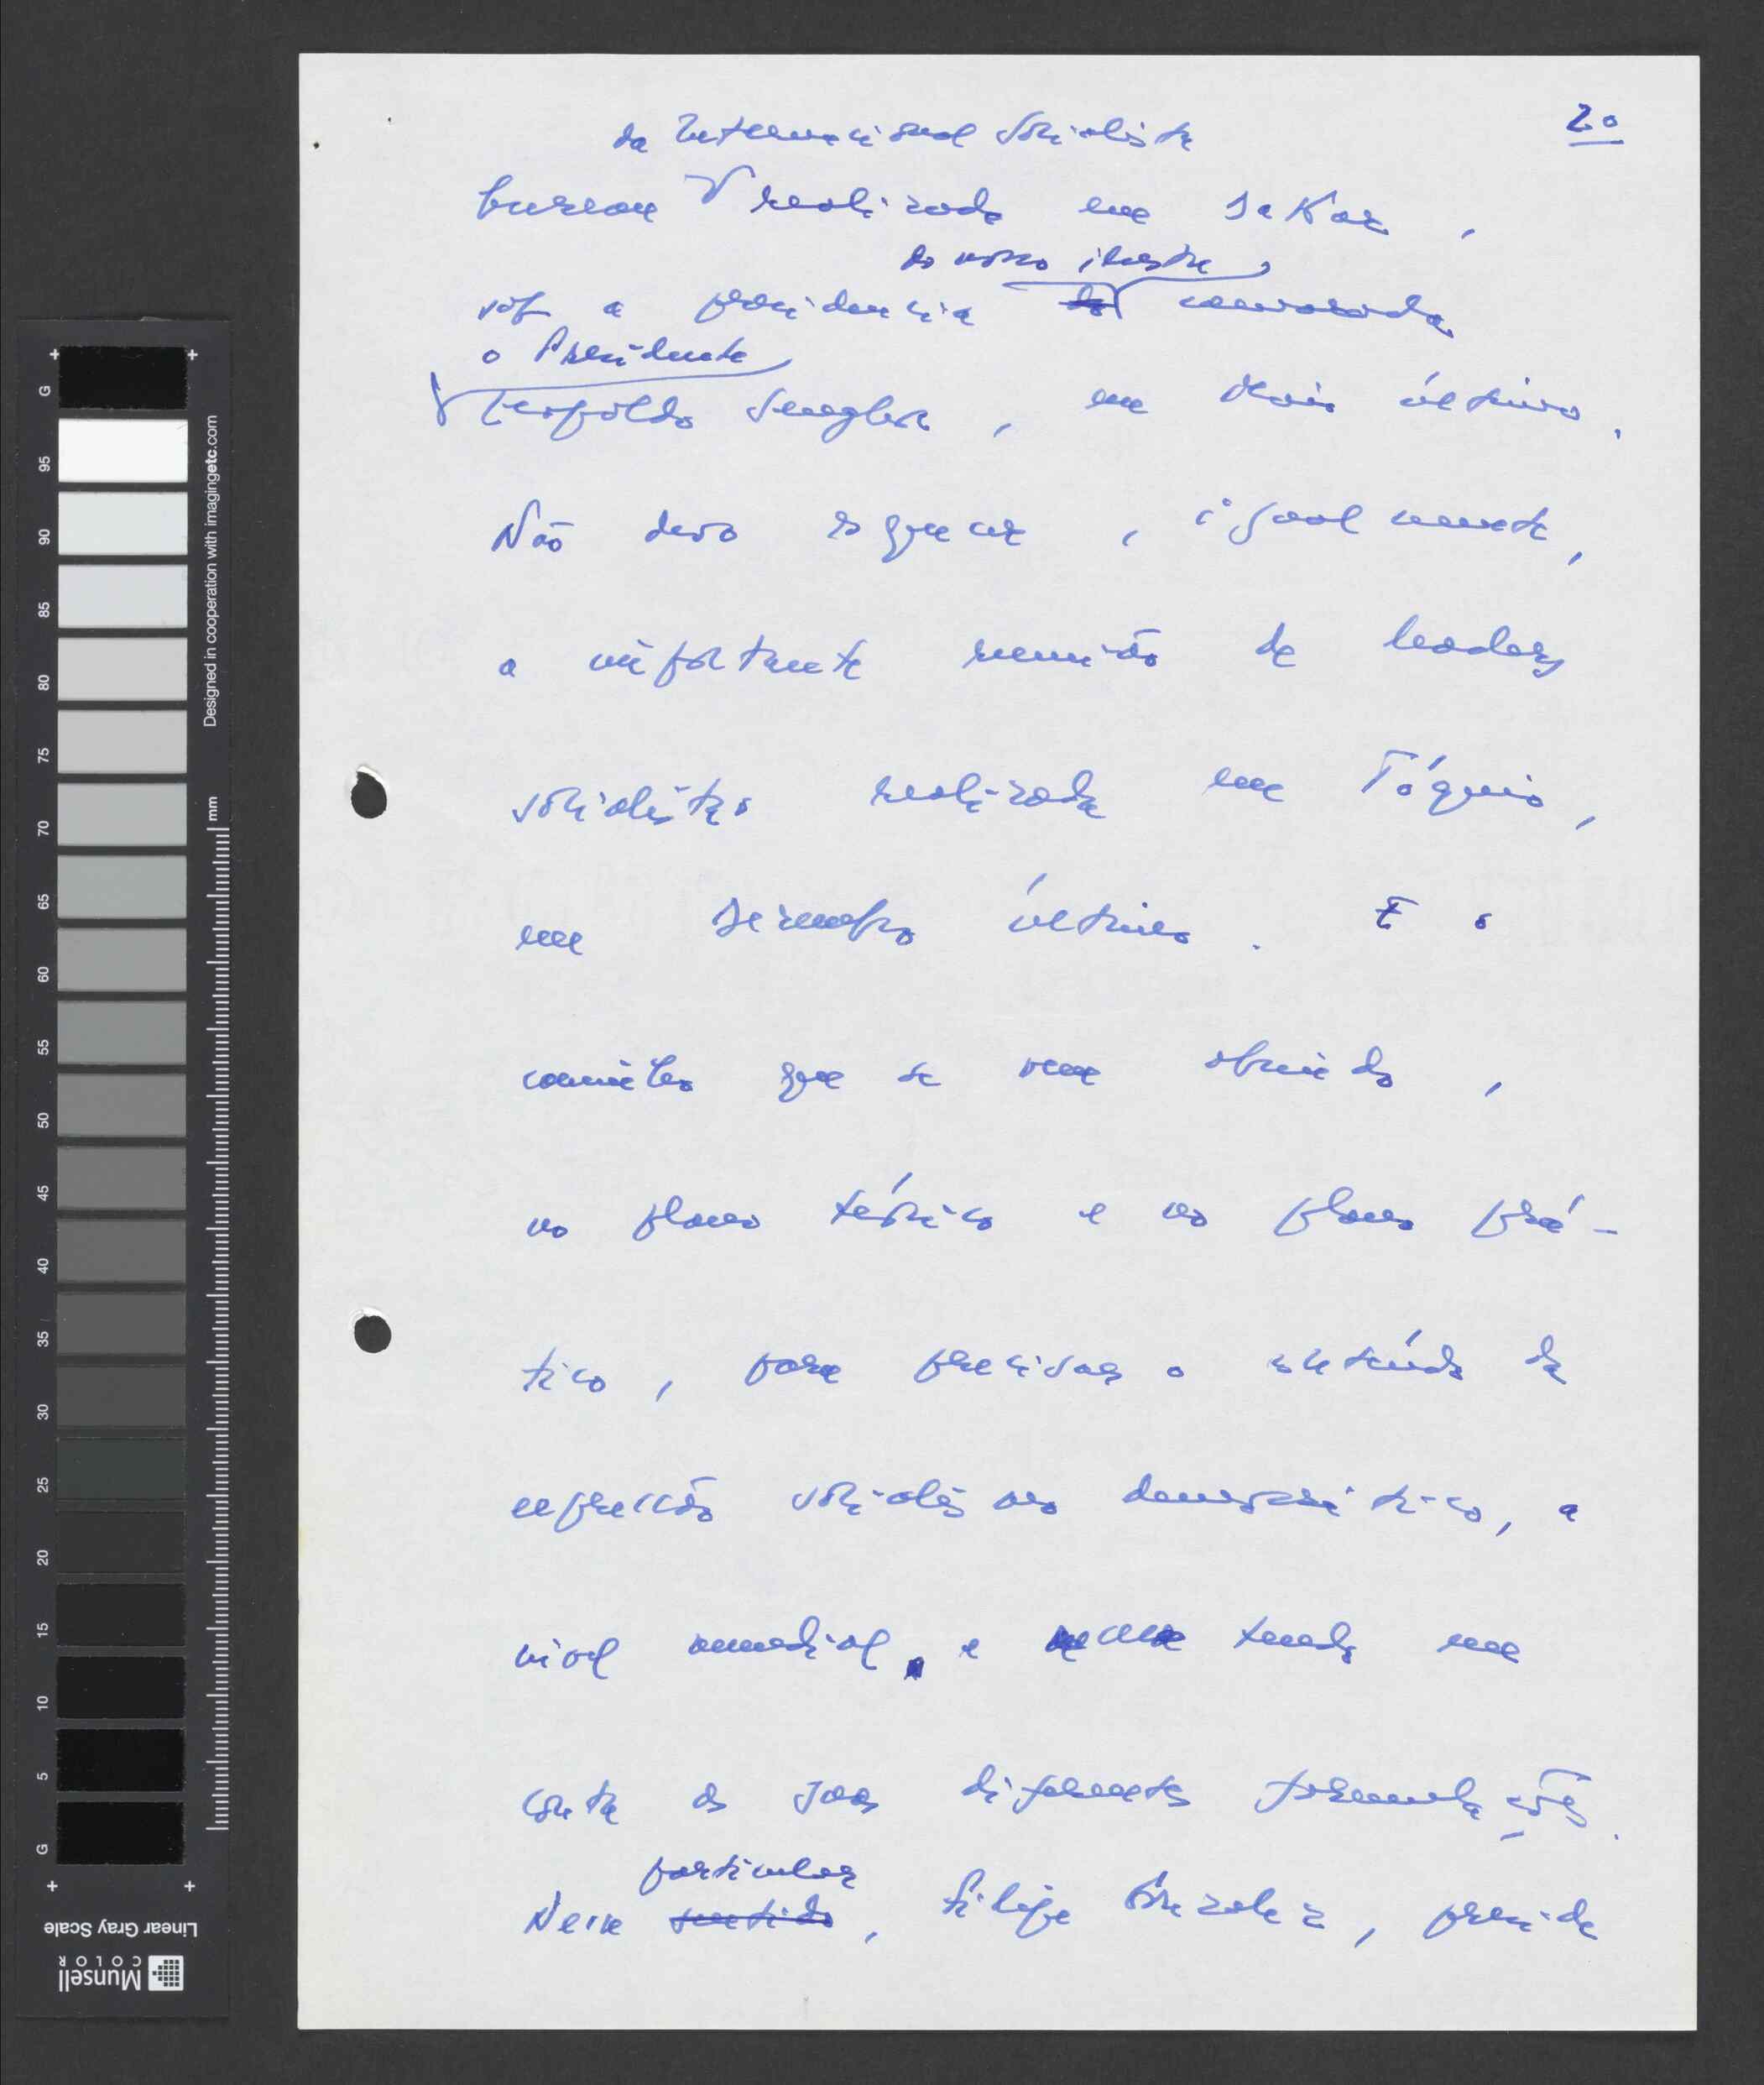 20
da Internacional Socialista
bureau realizada em Dakar,
do nosso ilustre
sob a presidência do camarada
o Presidente
Leopoldo Senghor, em Maio último.
Não devo esquecer, igualmente,
a importante reunião de leaders
socialistas realizada em Tóquio,
em Dezembro último. E o
caminho que se vem abrindo,
no plano teórico e no plano prá-
tico, para precisar o conteúdo da
expressão socialismo democrático, a
nível mundial, e tendo em
conta as suas diferentes formulações.
particular
Nesse sentido, Filipe Gonzalez, preside
G
95
90
85
80
75
70
65
60
55
50
45
40
35
30
25
20
15
10
5
G
Designed in cooperation with imagingetc.com
mm
Linear Gray Scale
Munsell
COLOR